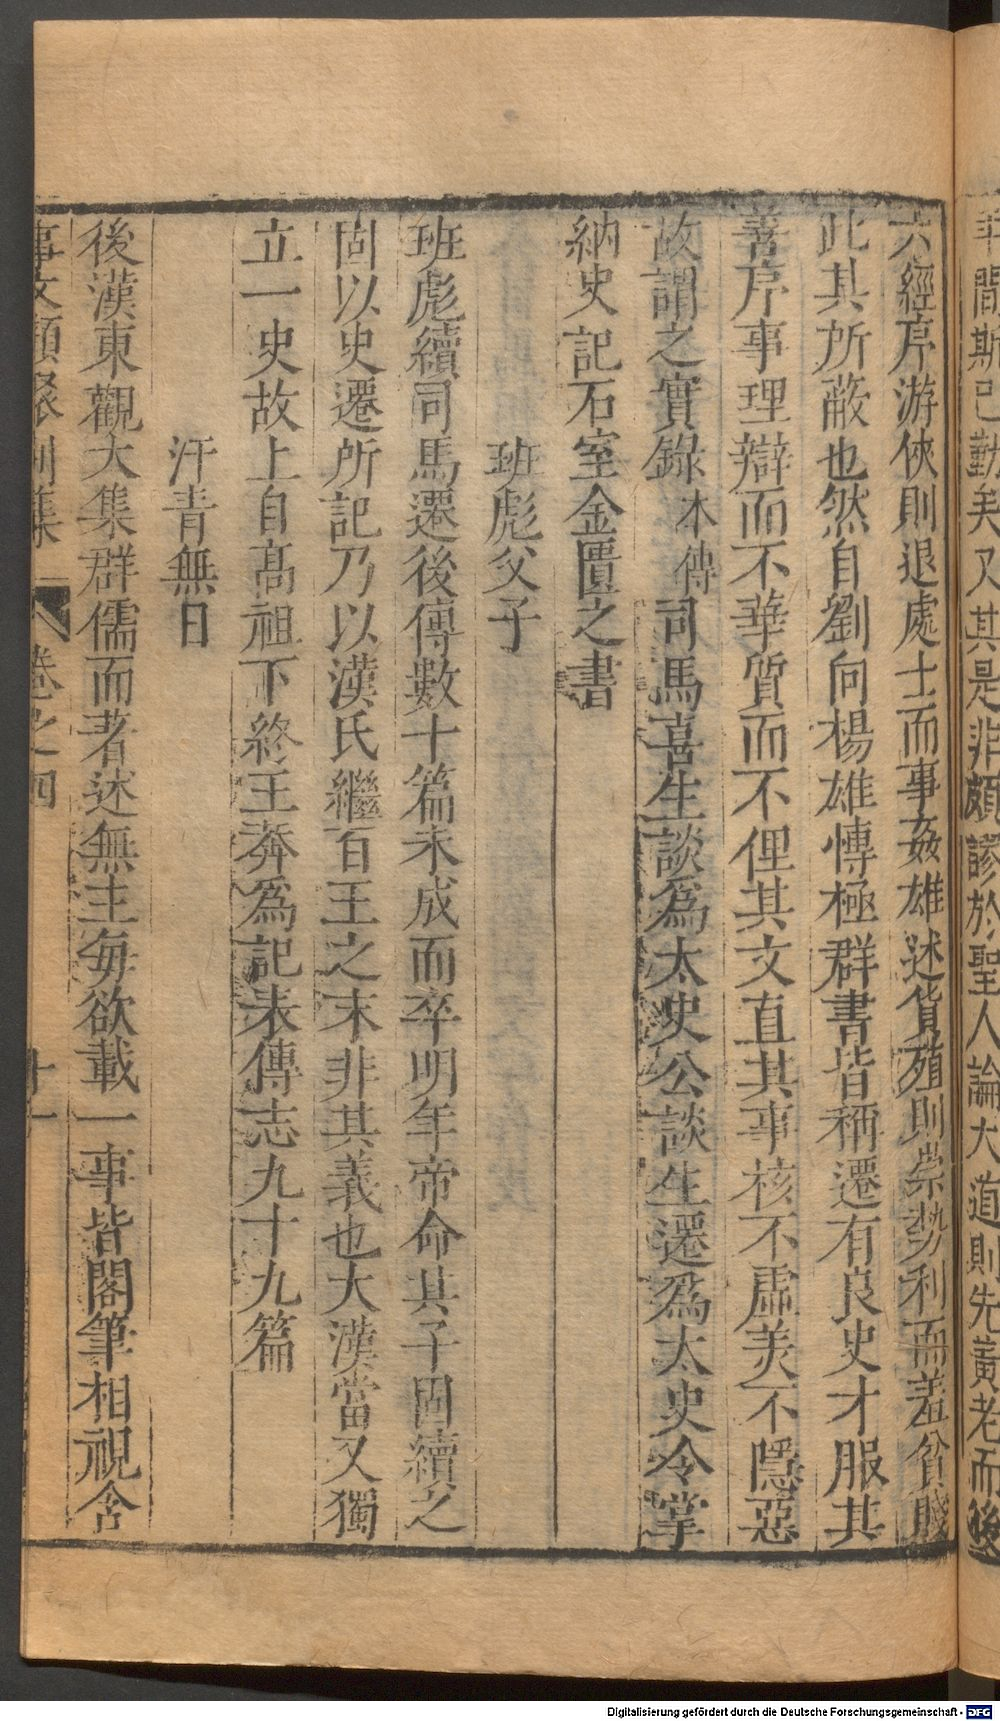 年間斯已勤矣又其是非頗謬於聖人論大道則先黃老而後
六經序游俠則退處士而事姦雄述貨殖則崇勢利而羞貧賤
此其所蔽也然自劉向楊雄愽極群書皆稱遷有良史才服其
善序事理辯而不華質而不俚其文直其事核不虛美不隱惡
故謂之實錄本傳司馬喜生談爲太史公談生遷爲太史令掌
納史記石室金匱之書
班彪父子
班彪續司馬遷後傳數十篇未成而卒明年帝命其子固續之
固以史遷所記乃以漢氏繼百王之末非其義也大漢當又獨
立一史故上自高祖下終王莽爲記表傳志九十九篇
汗青無日
後漢東觀大集群儒而著述無主每欲載一事皆閣筆相視含
事文類聚別集 卷之四 十一
Digitalisierung gefördert durch die Deutsche Forschungsgemeinschaft - DFG